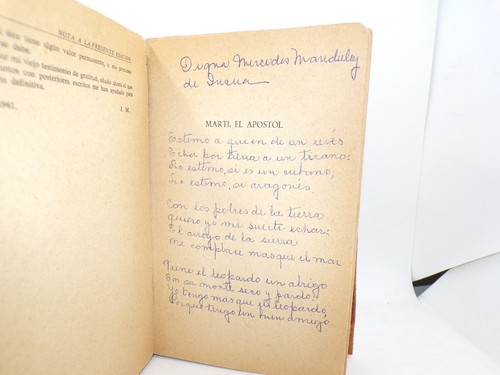 NOTA A LA PRESENTE EDICION
si éste tiene algún valor permanente, o sea
mi viejo testimonio de gratitud, añado ahora el que
con posteriores escritos me han ayudado para
definitiva.
1961.
J. M.
Digna Mercedes Manduley
de
MARTI, EL APOSTOL
Estimo a quien de un revés
Echa por tierra a un tirano:
Lo estimo, si es un cubano;
Lo estimo, si aragonés.
Con los pobres de la tierra
quiero yo mi suerte echar:
El arroyo de la sierra
Me complace mas que el mar
Tiene el leopardo un abrigo
En su monte seco y pardo;
Yo tengo mas que el leopardo,
Porque tengo un buen amigo